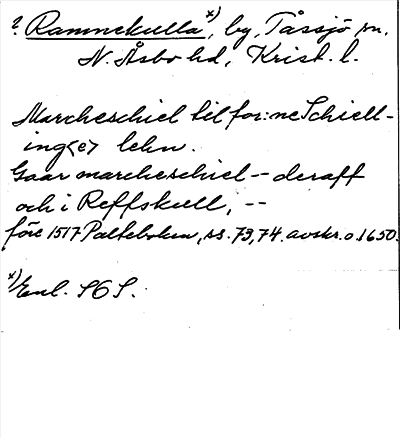 ? Rammekulla x), by, Tåssjö sn,
N. Åsbo hd, Krist. l.
Marcheschiel til for:ne Schiell-
ing<e> lehn.
Gaar marcheschiel -- deraff
och i Reffskull, --
före 1517 Palteboken, ss. 73, 74. avskr. o. 1650.
x) Enl. SOS.